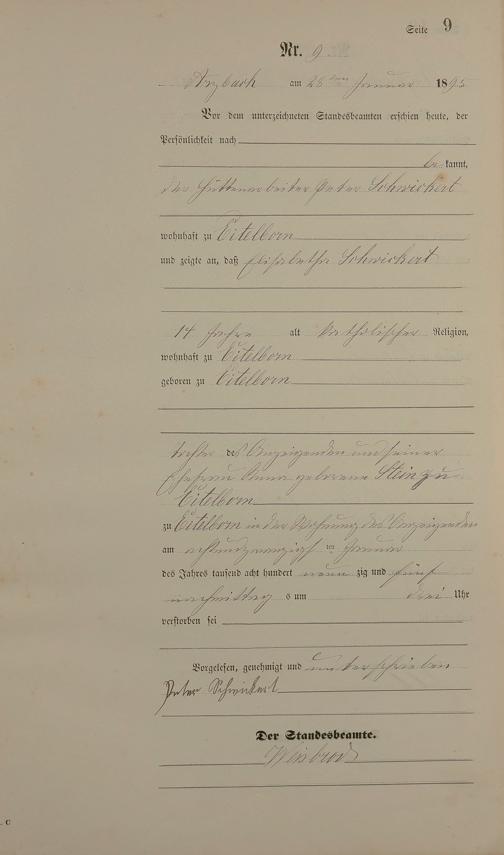 Seite 9
Nr. 9
Arzbach am 28ten Januar 1895
Vor dem unterzeichneten Standesbeamten erschien heute, der
Persönlichkeit nach
be kannt,
der Hüttenarbeiter Peter Schwickert
wohnhaft zu Eitelborn
und zeigte an, daß Elisabetha Schwickert
14 Jahre alt katholischer Religion,
wohnhaft zu Eitelborn
geboren zu Eitelborn
Tochter des Anzeigenden und seiner
Ehefrau Anna geborene Stein zu
Eitelborn
zu Eitelborn in der Wohnung des Anzeigenden
am achtundzwanzigsten Januar
des Jahres tausend acht hundert neun zig und fünf
nachmittag s um drei Uhr
verstorben sei
Vorgelesen, genehmigt und unterschrieben
Peter Schwickert
Der Standesbeamte.
Weisbrod
C